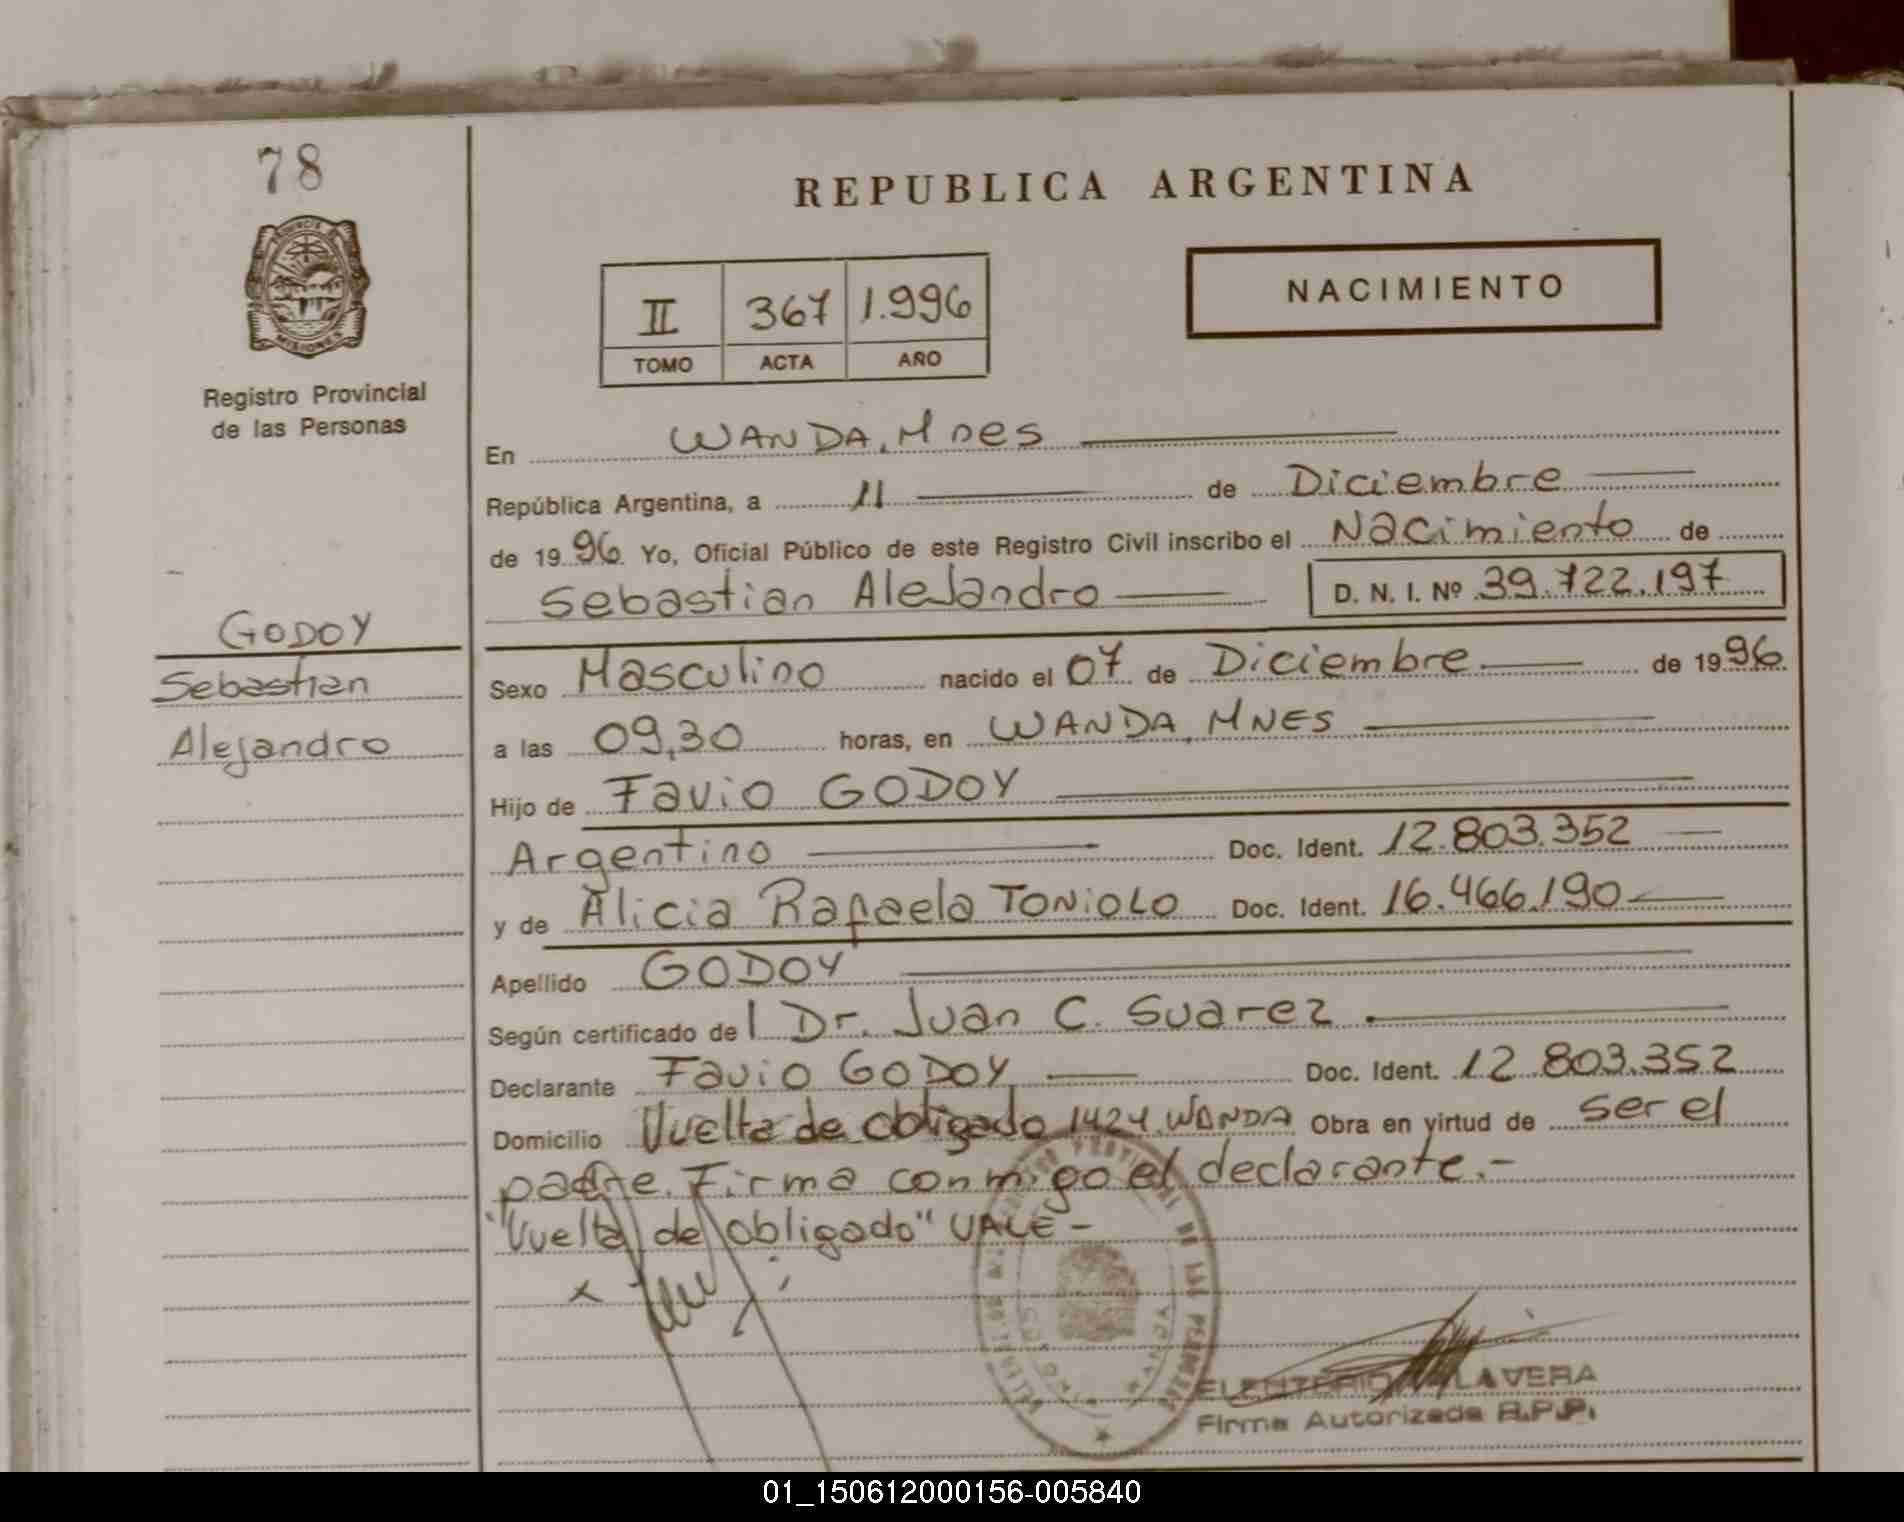 78
REPUBLICA ARGENTINA
NACIMIENTO
II 367 1.996
TOMO ACTA AÑO
MISIONES
Registro Provincial
de las Personas
En WANDA, Mnes
República Argentina, a 11 de Diciembre
de 1996 Yo, Oficial Público de este Registro Civil inscribo el Nacimiento de
Sebastian Alejandro D. N. I. Nº 39.722.197
GODOY
Sebastian
Alejandro
Sexo Masculino nacido el 07 de Diciembre de 1996
a las 09,30 horas, en WANDA, MNES
Hijo de Favio GODOY
Argentino Doc. Ident. 12.803.352
y de Alicia Rafaela TONIOLO Doc. Ident. 16.466.190
Apellido GODOY
Según certificado del Dr. Juan C. Suarez
Declarante Favio GODOY Doc. Ident. 12.803.352
Domicilio Vuelta de obligado 1424 WANDA Obra en virtud de ser el
padre. Firma conmigo el declarante.-
"Vuelta de obligado" VALE-
x
LAVERA
Firma Autorizada R.P.P.
01_150612000156-005840